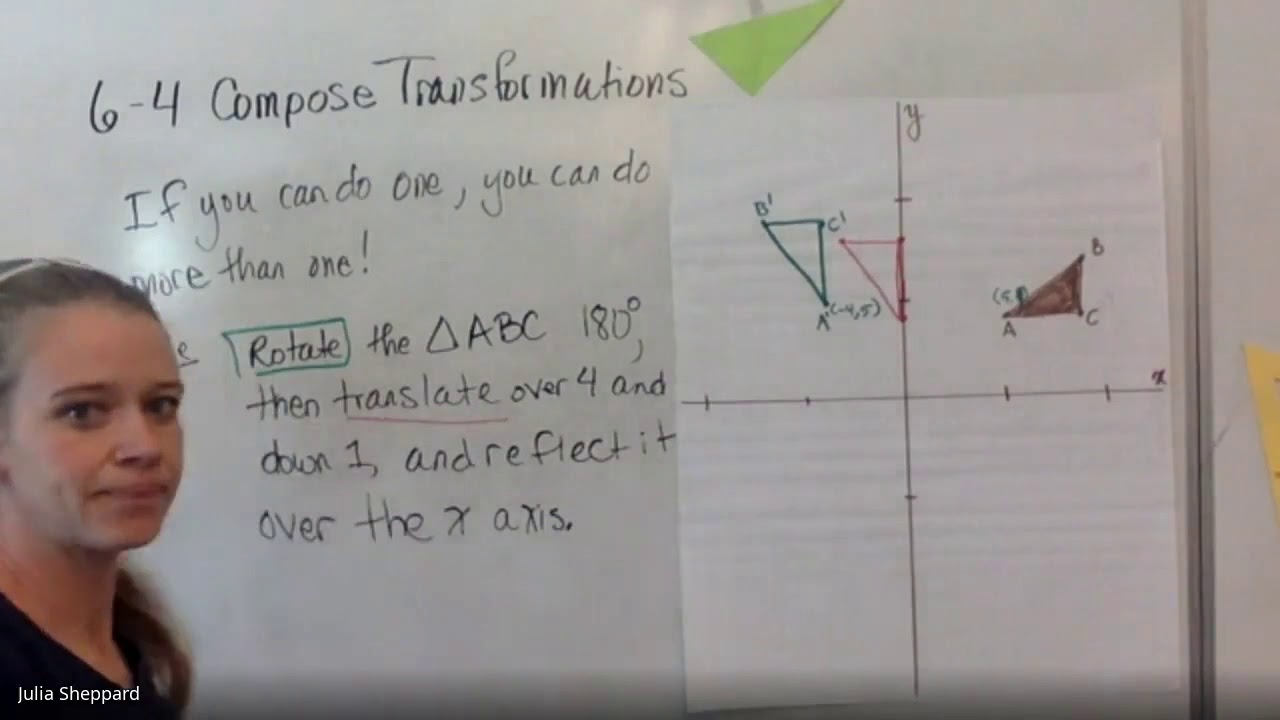 6-4 Compose Transformations
If you can do one, you can do
more than one!
Rotate the △ABC 180°,
then translate over 4 and
down 1, and reflect it
over the x axis.
y
B'
C'
A' (-4,5)
B
A
C
x
Julia Sheppard